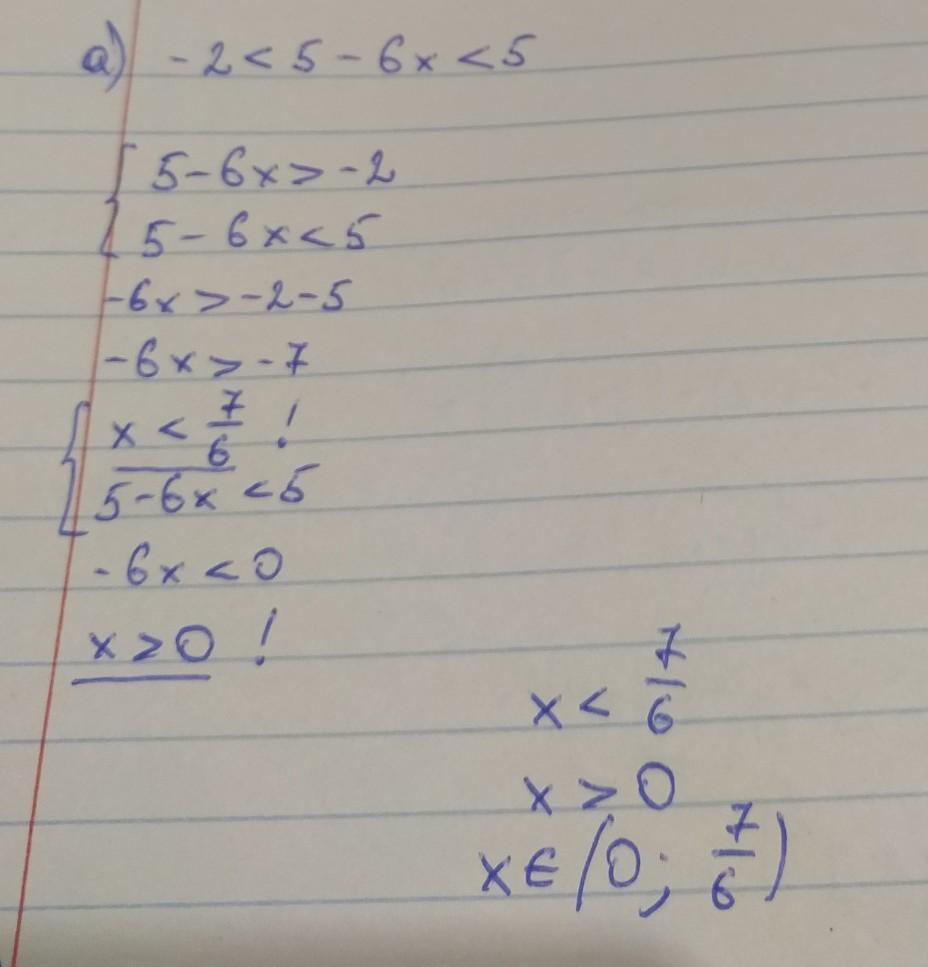 a) -2 < 5 - 6x < 5
5 - 6x > -2
5 - 6x < 5
-6x > -2 - 5
-6x > -7
x < 7/6 !
5 - 6x < 5
-6x < 0
x > 0 !
x < 7/6
x > 0
x ∈ (0; 7/6)